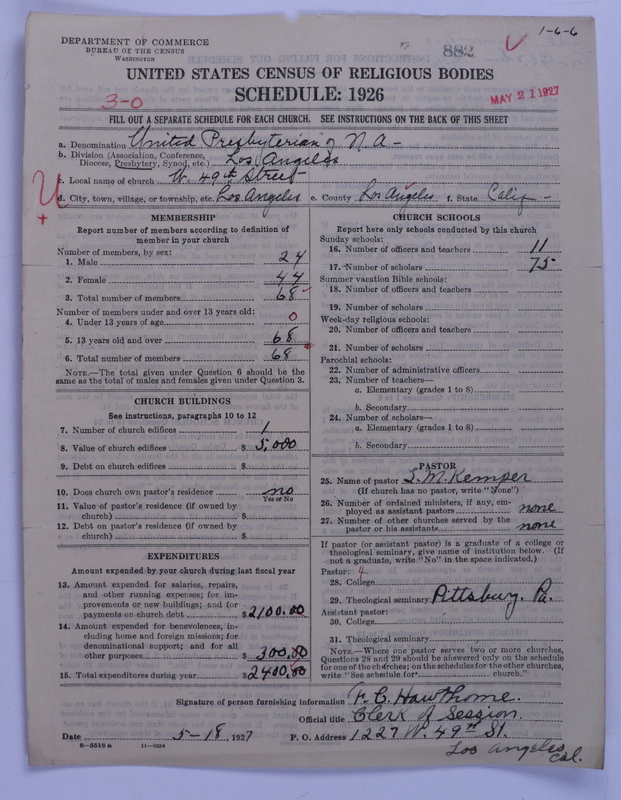 1-6-6
DEPARTMENT OF COMMERCE
BUREAU OF THE CENSUS
WASHINGTON
882
UNITED STATES CENSUS OF RELIGIOUS BODIES
SCHEDULE: 1926
MAY 21 1927
3-0
FILL OUT A SEPARATE SCHEDULE FOR EACH CHURCH. SEE INSTRUCTIONS ON THE BACK OF THIS SHEET
a. Denomination United Presbyterian of N A -
b. Division (Association, Conference, Diocese, Presbytery, Synod, etc.) Los Angeles
c. Local name of church W. 49th Street
d. City, town, village, or township, etc. Los Angeles e. County Los Angeles f. State Calif -
MEMBERSHIP
Report number of members according to definition of
member in your church
Number of members, by sex:
1. Male 24
2. Female 44
3. Total number of members 68
Number of members under and over 13 years old:
4. Under 13 years of age 0
5. 13 years old and over 68
6. Total number of members 68
NOTE.—The total given under Question 6 should be the
same as the total of males and females given under Question 3.
CHURCH BUILDINGS
See instructions, paragraphs 10 to 12
7. Number of church edifices 1
8. Value of church edifices $ 5,000
9. Debt on church edifices $
10. Does church own pastor's residence no
Yes or No
11. Value of pastor's residence (if owned by
church) $
12. Debt on pastor's residence (if owned by
church) $
EXPENDITURES
Amount expended by your church during last fiscal year
13. Amount expended for salaries, repairs,
and other running expenses; for im-
provements or new buildings; and for
payments on church debt $ 2100.00
14. Amount expended for benevolences, in-
cluding home and foreign missions; for
denominational support; and for all
other purposes $ 300.00
15. Total expenditures during year $ 2400.00
CHURCH SCHOOLS
Report here only schools conducted by this church
Sunday schools:
16. Number of officers and teachers 11
17. Number of scholars 75
Summer vacation Bible schools:
18. Number of officers and teachers
19. Number of scholars
Week-day religious schools:
20. Number of officers and teachers
21. Number of scholars
Parochial schools:
22. Number of administrative officers
23. Number of teachers—
a. Elementary (grades 1 to 8)
b. Secondary
24. Number of scholars—
a. Elementary (grades 1 to 8)
b. Secondary
PASTOR
25. Name of pastor S. M. Kemper
(If church has no pastor, write "None")
26. Number of ordained ministers, if any, em-
ployed as assistant pastors none
27. Number of other churches served by the
pastor or his assistants none
If pastor (or assistant pastor) is a graduate of a college or
theological seminary, give name of institution below. (If
not a graduate, write "No" in the space indicated.)
Pastor: 4
28. College
29. Theological seminary Pittsburg, Pa.
Assistant pastor:
30. College
31. Theological seminary
NOTE.—Where one pastor serves two or more churches,
Questions 28 and 29 should be answered only on the schedule
for one of the churches; on the schedules for the other churches
write "See schedule for church."
Signature of person furnishing information F. C. Hawthorne.
Official title Clerk of Session.
Date 5-18, 1927 P. O. Address 1227 W. 49th St.
8-5518a 11-9084
Los Angeles
Cal.